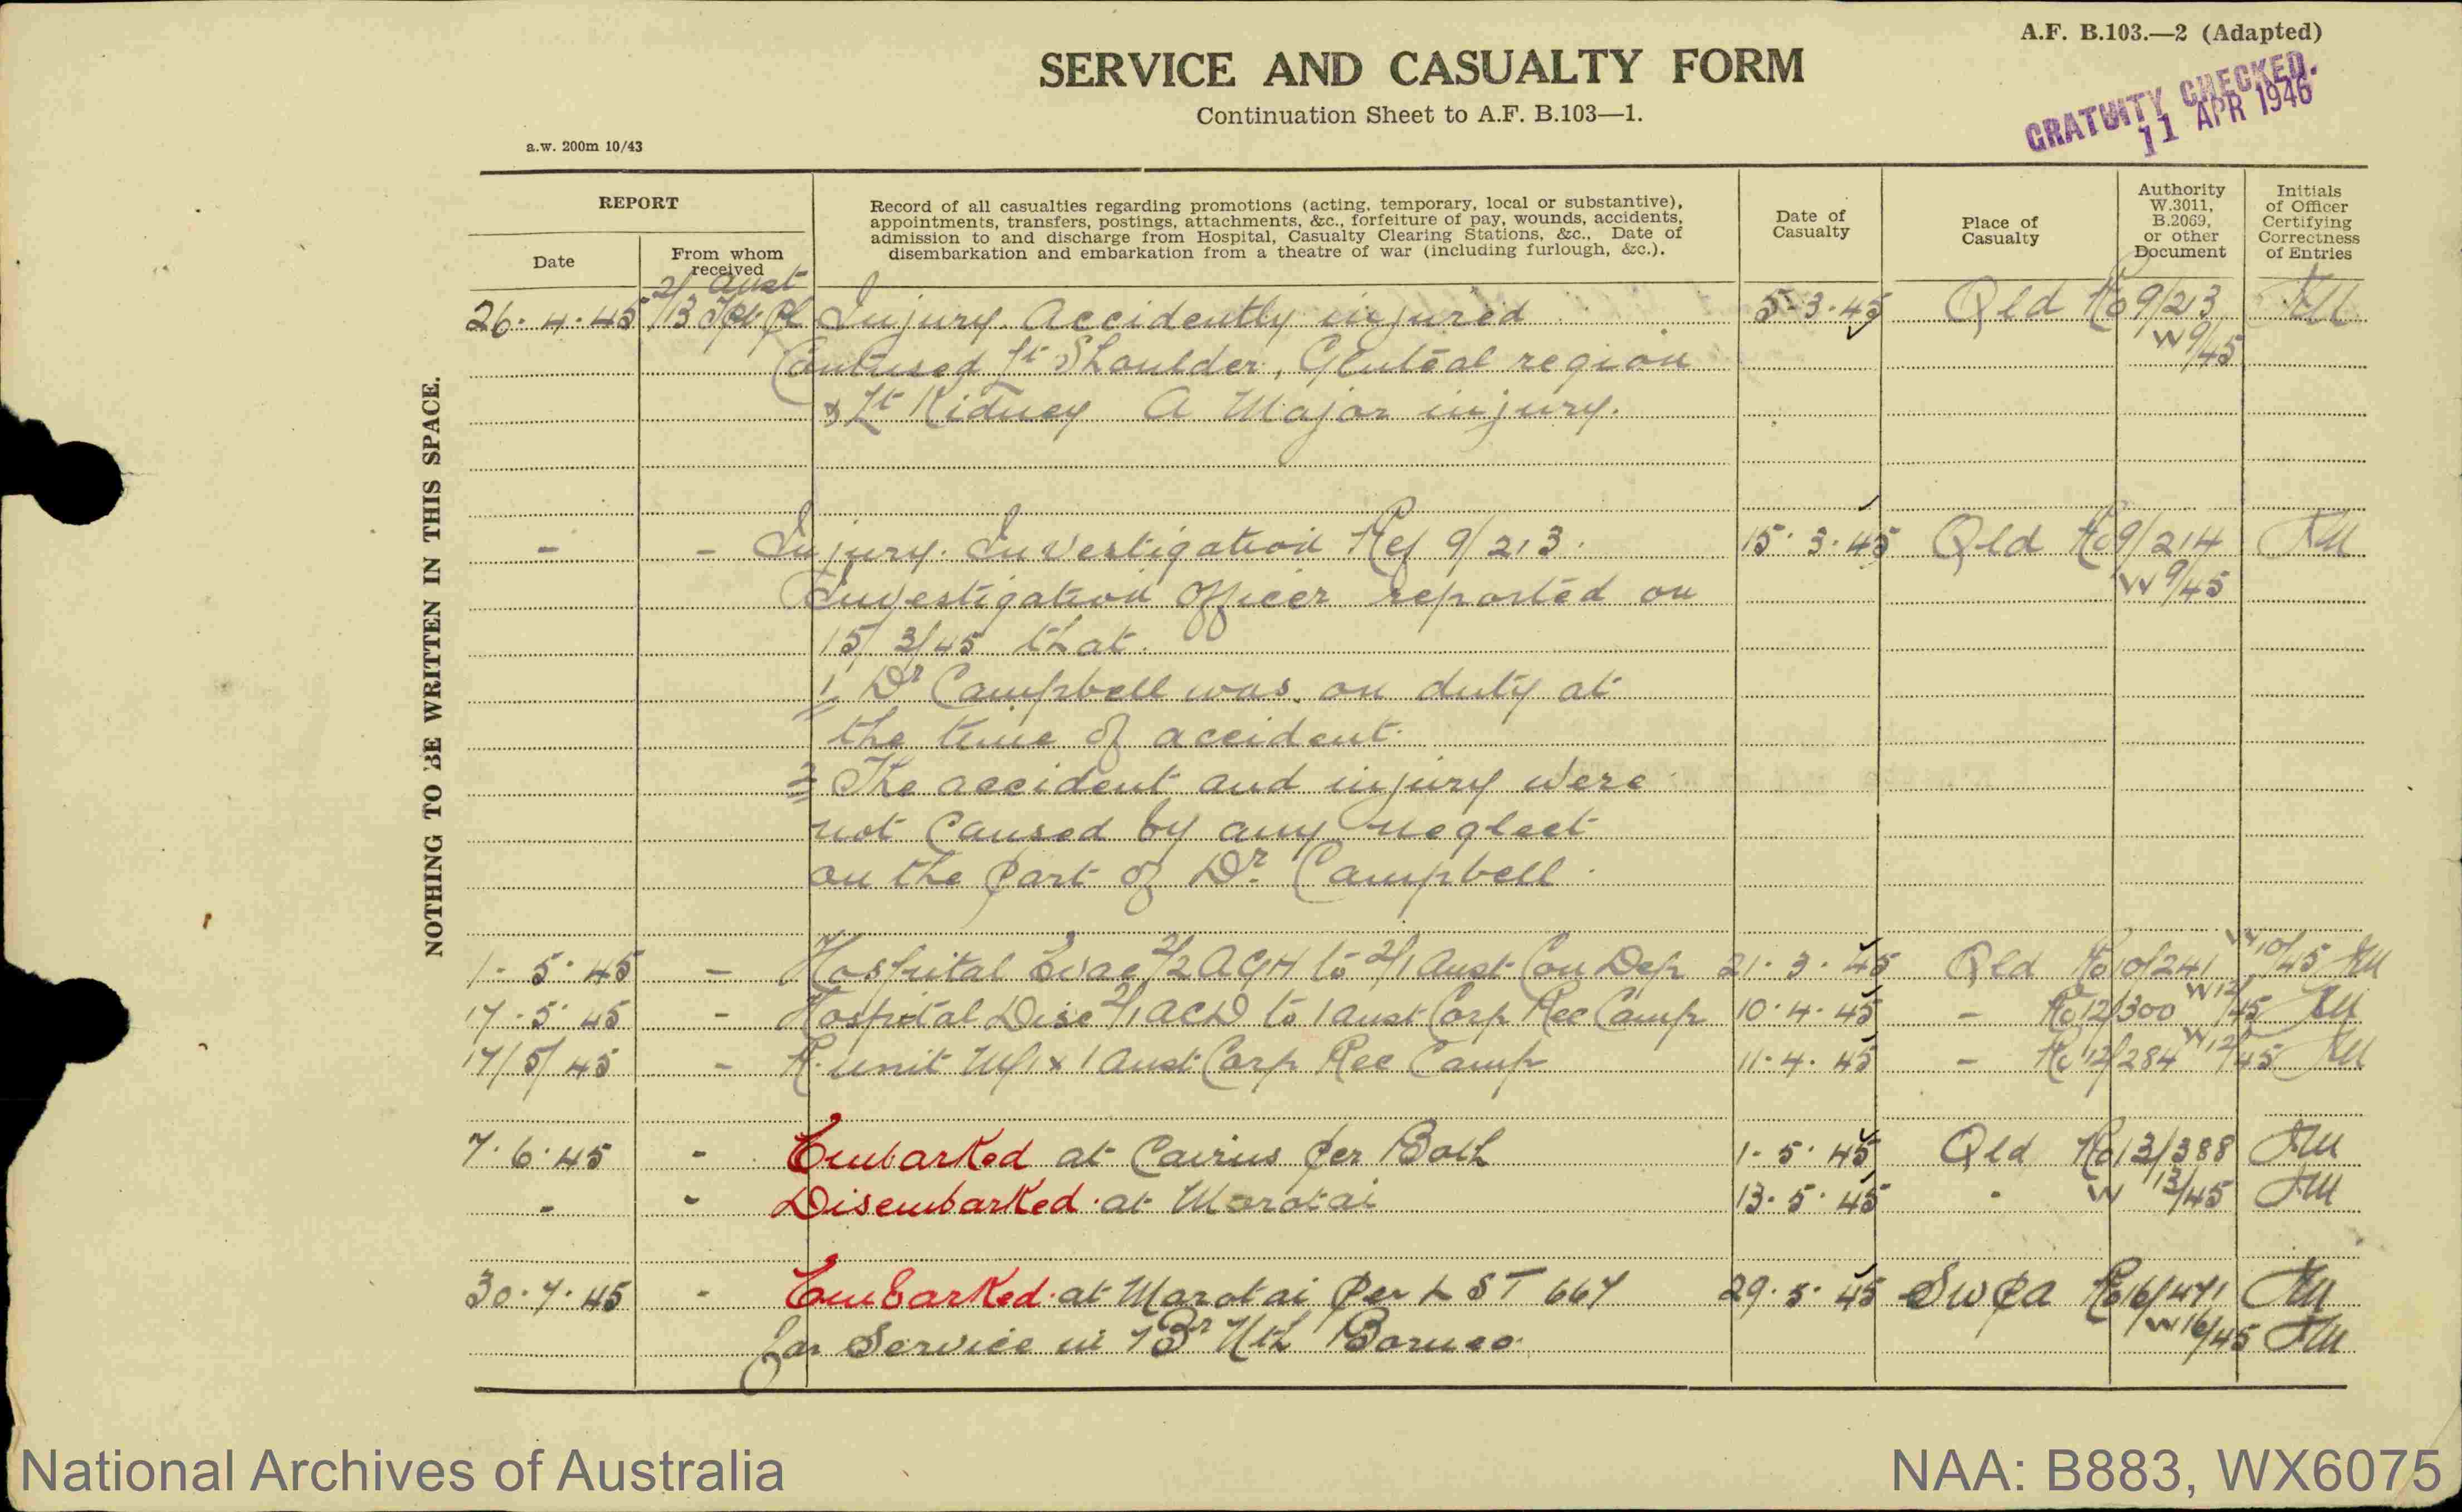 A.F. B.103.—2 (Adapted)
SERVICE AND CASUALTY FORM
Continuation Sheet to A.F. B.103—1.
GRATUITY CHECKED.
11 APR 1946
a.w. 200m 10/43
NOTHING TO BE WRITTEN IN THIS SPACE.
REPORT
Date
From whom received
Record of all casualties regarding promotions (acting, temporary, local or substantive),
appointments, transfers, postings, attachments, &c., forfeiture of pay, wounds, accidents,
admission to and discharge from Hospital, Casualty Clearing Stations, &c., Date of
disembarkation and embarkation from a theatre of war (including furlough, &c.).
Date of Casualty
Place of Casualty
Authority W.3011, B.2069, or other Document
Initials of Officer Certifying Correctness of Entries
2/ Aust
26.4.45 /13 Pl Injury. Accidently injured 5.3.45 Qld Ro 9/213
Contused Lt Shoulder, Gluteal region W 9/45
& Lt Kidney A Major injury.
- - Injury. Investigation Ref 9/213. 15.3.45 Qld Ro 9/214
Investigation Officer reported on W 9/45
15/3/45 that.
1, Dr Campbell was on duty at
the time of accident.
2 The accident and injury were
not caused by any neglect
on the part of Dr. Campbell.
1.5.45 - Hospital Evac 2/2 AGH to 2/1 Aust Con Dep 21.3.45 Qld Ro 10/241 W 10/45
17.5.45 - Hospital Disc 2/1 ACD to 1 Aust Corp Rec Camp 10.4.45 - Ro 12/300 W 12/45
17/5/45 - R. unit M/I x 1 Aust Corp Rec Camp 11.4.45 - Ro 12/284 W 12/45
7.6.45 - Embarked at Cairns per Both 1.5.45 Qld Ro 13/388
- - Disembarked at Morotai 13.5.45 " W 13/45
30.7.45 - Embarked at Morotai per LST 667 29.5.45 SWPA Ro 16/471
for Service in Br Nth Borneo. W 16/45
National Archives of Australia
NAA: B883, WX6075